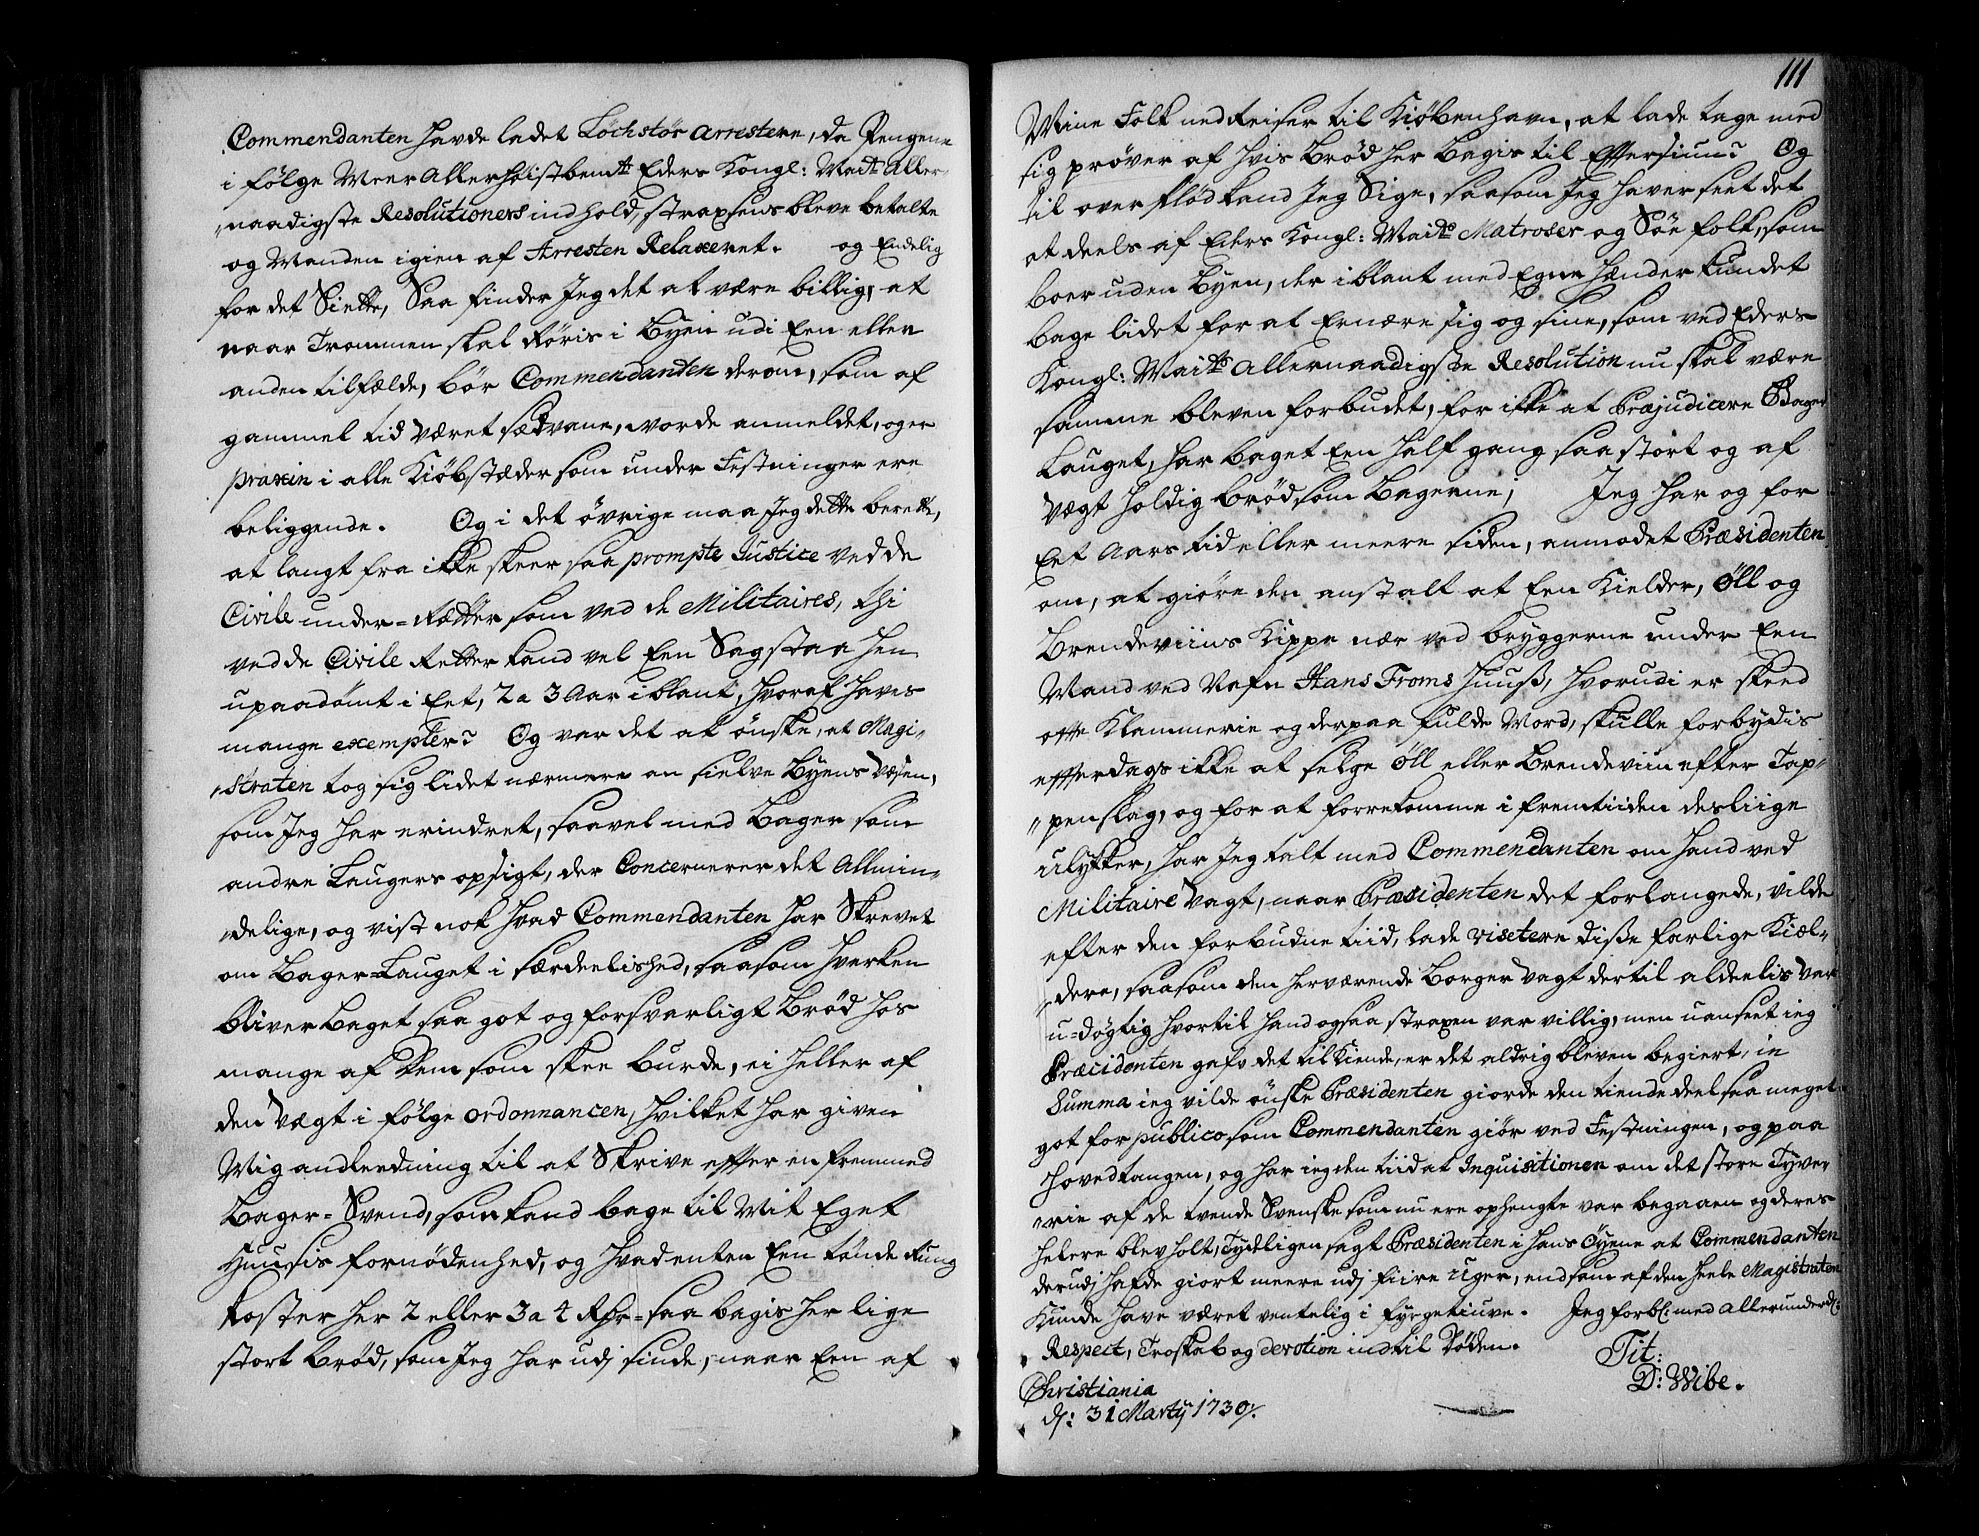 Commendanten hafde ladet Löchstör arrestere, da Pengene
i følge Meer Allerhøistbemte Eders Kongl: Maits Aller-
naadigste Resolutioners indhold, strax sens bleve betalte
og Manden igien af Arresten Relaxeret. og Endelig
for det Siette, Saa finder Jeg det at være billig, at
naar Trommen skal Røris i Byen udi Een eller
anden tilfælde, bør Commendanten derom, som af
gammel tid været sædvane, worde anmeldet, og er
praxin i alle Kiøbstæder som under Festninger ere
beliggende. Og i det øvrige maa Jeg dette berette,
at langt fra ikke skeer saa prompte Justice ved de
Civile under-Rætter som ved de Militaires, thi
ved de Civile Retter kand vel Een Sag staa hen
upaadømt i Eet, 2 a 3 Aar iblant, hvoraf havis
mange exempler? Og var det at ønske, at Magi-
straten tog sig lidet nærmere an sielve Byens Væsen,
som Jeg har erindret, saavel med Bager som
andre Laugers opsigt, der Concernerer det Allmin-
delige, og vist nok hvad Commendanten har Skrevet
om Bager-Lauget i særdeelished, saasom hverken
bliver Baget saa got og forsvarligt Brød hos
mange af Dem som skee burde, ei heller af
den Vægt i følge ordonnancen, hvilket har given
Mig andleedning til at Skrive effter en fremmed
Bager-Svend, som kand bage til Mit Eget
Huusis fornødenhed, og hvad enten Een tønde Rung
koster her 2 eller 3 a 4 Rdr - saa bagis her lige
stort Brød, som Jeg har udj sinde, naar Een af
111
Mine Folk nedReiser til Kiøbenhavn, at lade tage med
sig prøver af hvis Brød her Bagis til Effersiun? Og
til overflød kand Jeg Sige, saasom Jeg haver seet det
at deels af Eders Kongl: Maits Matroser og Søe folk, som
boer uden Byen, der iblant med Egne hænder kundet
bage lidet for at Ernære sig og sine, som ved Eders
Kongl: Maits Allernaadigste Resolution nu skal være
samme bleven forbudet, for ikke at Præjudicere Bager
Lauget, har baget Een half gang saa stort og af
Vægt holdig Brød som Bagerne; Jeg har og for
Eet Aars tid eller meere siden, anmodet Præsidenten
om, at giøre den anstalt at Een Kielder, Öll og
Brendeviins Kippe nær ved bryggerne under Een
Mand ved Nafn Hans Froms Huuss, hvorudi er skeed
otte Klammerie og derpaa fulde Mord, skulle forbydis
effterdags ikke at selge Öll eller Brendeviin efter Tap-
penslag, og for at forrekomme i fremtiiden desliige
ulykker, har Jeg talt med Commendanten om hand ved
Militaire Vagt, naar Præsidenten det forlangede, vilde
efter den forbudne tiid, lade visetere disse farlige Kiæl-
dere, saasom den herværende Borger Vagt dertil aldeelis var
u-døgtig hvortil hand ogsaa straxen var villig, men uanseet ieg
Præcidenten gafv det tilkiende, er det aldrig bleven begiert, in
Summa ieg vilde ønske Præsidenten giorde den tiende deel saa meget
got for publico som Commendanten giør ved Festningen, og paa
Hovedtangen, og har ieg den tiid at Inquisitionen om det store Tyve-
rie af de tvende Svenske som nu ere ophengte var begaaen og deres
helere blev holt, Tydeligen sagt Præsidenten i hans Øyene at Commendanten
derudj hafde giort meere udj fiire Uger, end som af den heele Magistraten
Kunde have været ventelig i fyrgetiuve. Jeg forbl: med allerunderd:
Respect, Troskab og devotion indtil Døden.
Tit:
D: Wibe.
Christiania
dj: 31 Martij 1730/.